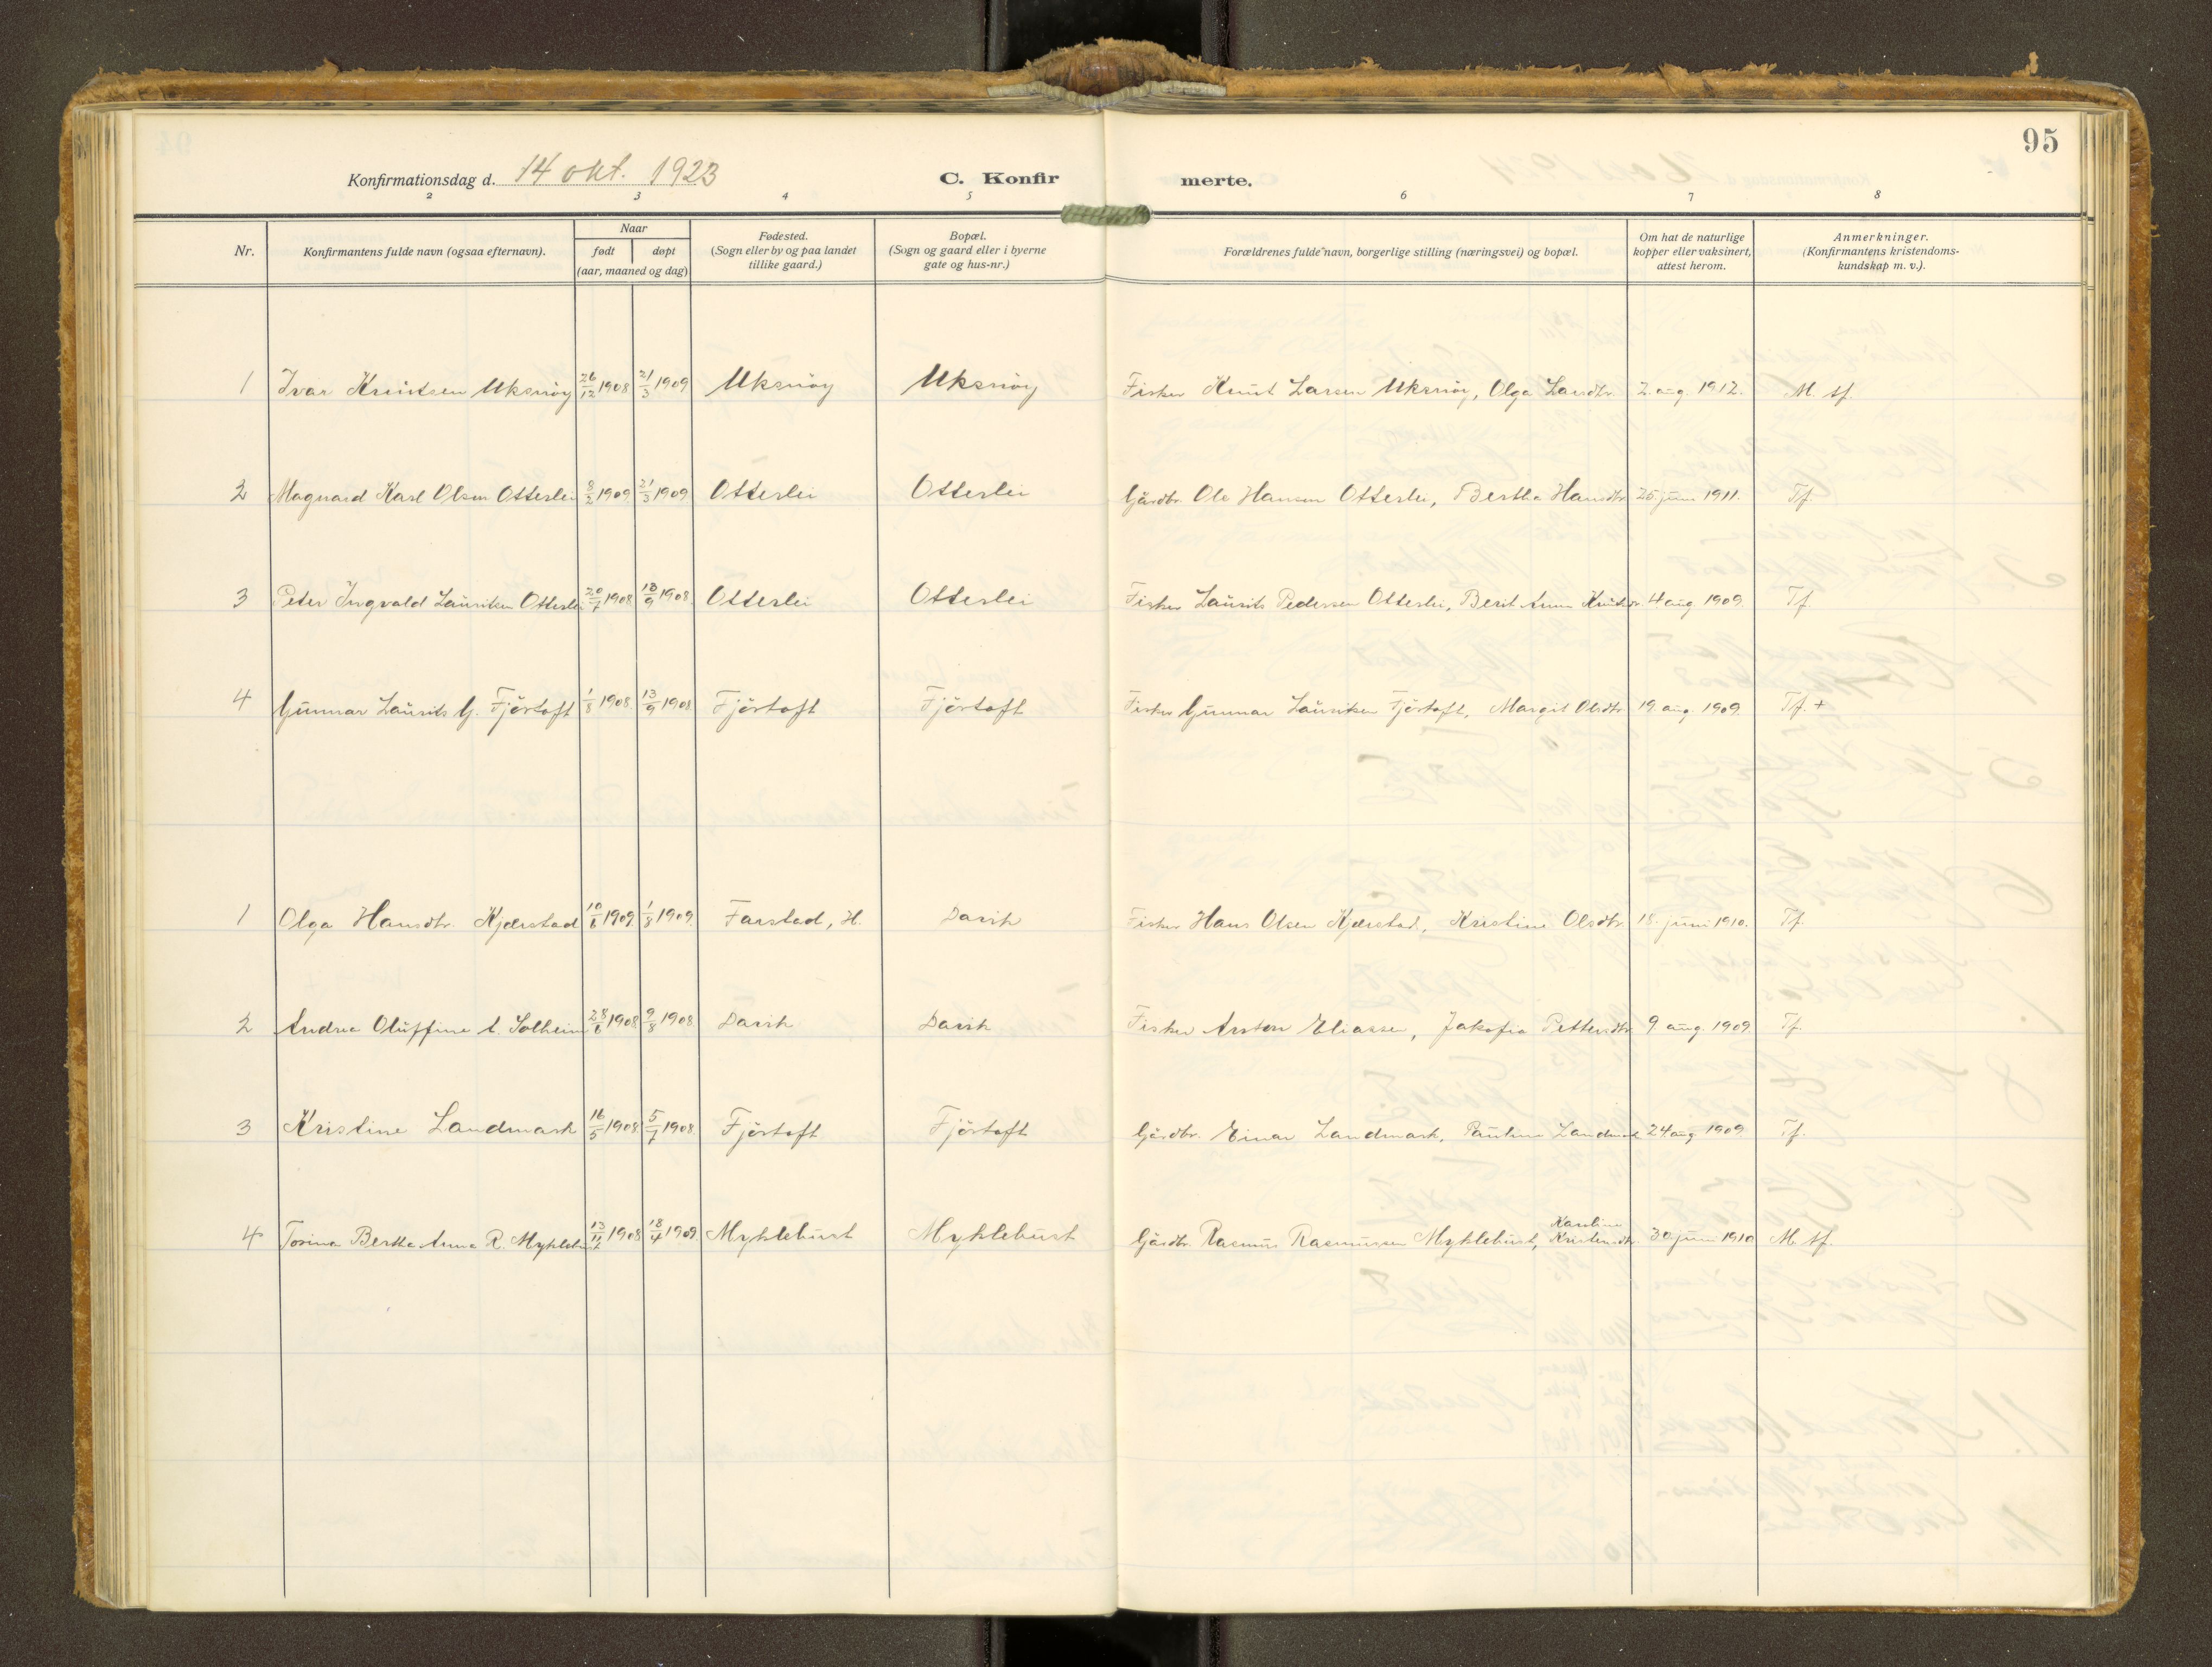 95
Konfirmationsdag d. 14 okt. 1923 C. Konfirmerte.
2 3 4 5 6 7 8
Nr. Konfirmantens fulde navn (ogsaa efternavn). Naar født døpt (aar, maaned og dag) Fødested. (Sogn eller by og paa landet tillike gaard.) Bopæl. (Sogn og gaard eller i byerne gate og hus-nr.) Forældrenes fulde navn, borgerlige stilling (næringsvei) og bopæl. Om hat de naturlige kopper eller vaksinert, attest herom. Anmerkninger. (Konfirmantens kristendomskundskap m. v.).
1 Ivar Knutsen Uksnøy 26/12 1908 21/3 1909 Uksnøy Uksnøy Fisker Knut Larsen Uksnøy, Olga Larsdtr. 2. aug. 1912. M. tf.
2 Magnard Karl Olsen Otterlei 8/2 1909 21/3 1909 Otterlei Otterlei Gårdbr. Ole Hansen Otterlei, Bertha Hansdtr. 25. juni 1911. Tf.
3 Peter Ingvald Lauritsen Otterlei 20/7 1908 13/9 1908 Otterlei Otterlei Fisker Laurits Pedersen Otterlei, Berit Anna Knutsdtr. 4 aug. 1909. Tf.
4 Gunnar Laurits G. Fjörtoft 1/8 1908. 13/9 1908 Fjörtoft Fjörtoft Fisker Gunnar Lauritsen Fjörtoft, Margit Olsdtr. 19. aug. 1909. Tf. +
1 Olga Hansdtr. Kjærstad 10/6 1909. 1/8 1909. Farstad, H. Davik Fisker Hans Olsen Kjærstad, Kristine Olsdtr. 18. juni 1910. Tf.
2 Andrea Oluffine A. Solheim 28/6 1908 9/8 1908 Davik Davik Fisker Arsten Eliassen, Jakofia Pettersdtr. 9 aug. 1909 Tf.
3 Kristine Landmark 16/5 1908. 5/7 1908. Fjörtoft Fjörtoft Gårdbr. Einar Landmark, Pauline Landmark 24. aug. 1909. Tf.
4 Torina Bertha Anna R. Myklebust 13/11 1908 18/4 1909. Myklebust Myklebust Gårdbr. Rasmus Rasmussen Myklebust, Karoline Kristensdtr. 30. juni 1910 M. tf.